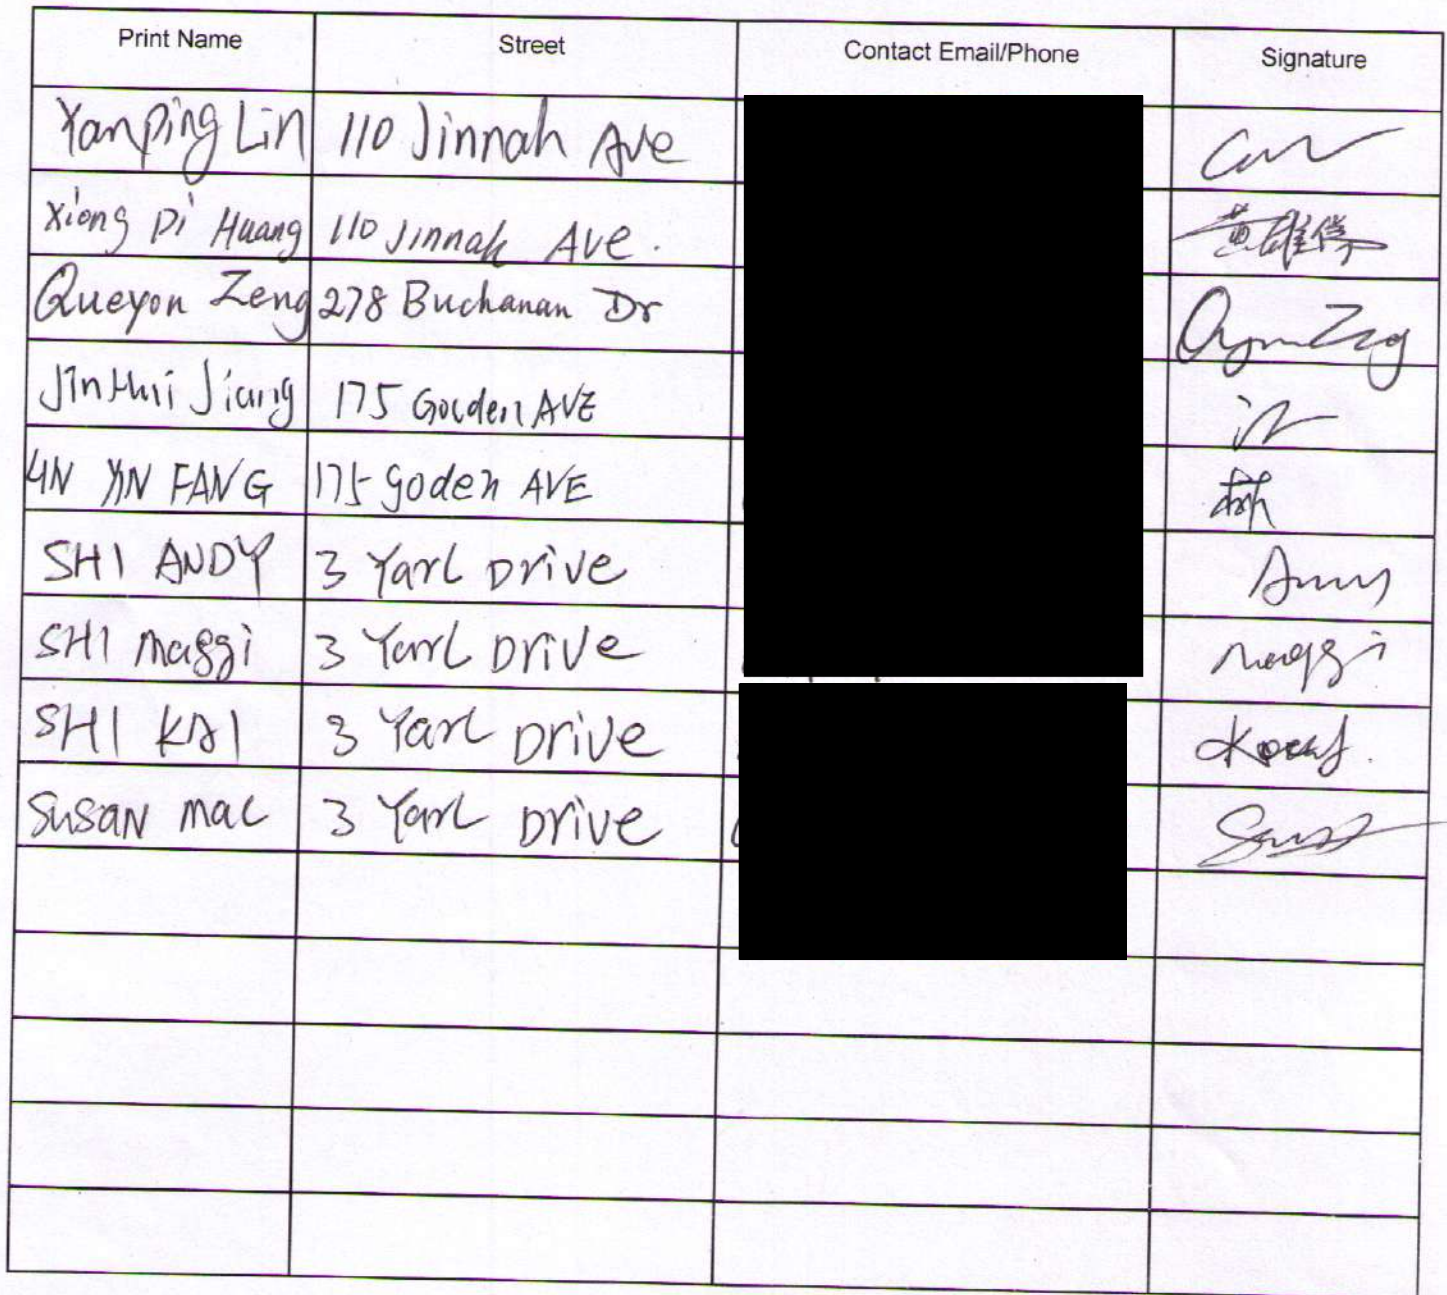 Print Name Street Contact Email/Phone Signature
Yanping Lin 110 Jinnah Ave
Xiong Di Huang 110 Jinnah Ave. 黄雄俤
Queyon Zeng 278 Buchanan Dr
JinHui Jiang 175 Goulden AVE
LIN YIN FANG 175 goden AVE 林
SHI ANDY 3 Yarl Drive Andy
SHI Maggi 3 Yarl Drive Maggi
SHI KAI 3 Yarl Drive
SUSAN Mac 3 Yarl Drive